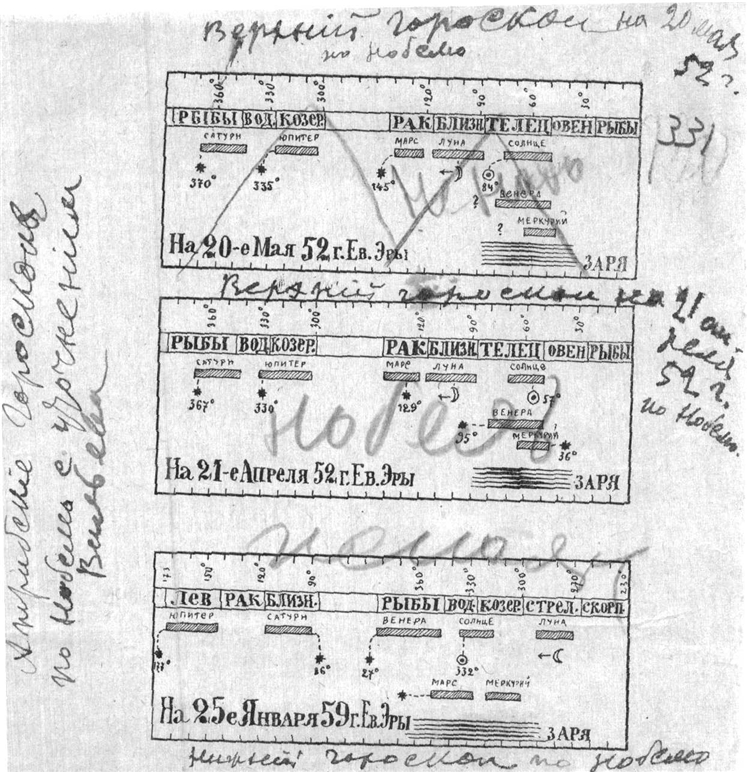 Верхний гороскоп на 20 мая
52 г.
по Нобелю
331
360° 330° 300° 120° 90° 60° 30°
РЫБЫ ВОД. КОЗЕР. РАК БЛИЗН. ТЕЛЕЦ ОВЕН РЫБЫ
САТУРН ЮПИТЕР МАРС ЛУНА СОЛНЦЕ
370° 335° 145° 84°
? ВЕНЕРА
? МЕРКУРИЙ
На 20-е Мая 52 г. Ев. Эры ЗАРЯ
Верхний гороскоп на 21 ап-
реля
52 г.
по Нобелю.
330 300 120 90° 60° 30°
РЫБЫ ВОД. КОЗЕР. РАК БЛИЗН. ТЕЛЕЦ ОВЕН РЫБЫ
САТУРН ЮПИТЕР МАРС ЛУНА СОЛНЦЕ
367° 330° 129° 57°
ВЕНЕРА
95°
МЕРКУРИЙ
36°
На 21-е Апреля 52 г. Ев. Эры ЗАРЯ
Нобель
150° 120° 90° 360° 330° 300° 270° 230°
ЛЕВ РАК БЛИЗН. РЫБЫ ВОД. КОЗЕР. СТРЕЛ. СКОРП.
ЮПИТЕР САТУРН ВЕНЕРА СОЛНЦЕ ЛУНА
177° 86° 27° 332°
МАРС МЕРКУРИЙ
На 25 е Января 59 г. Ев. Эры ЗАРЯ
Нижний гороскоп по Нобелю
Атрибские Гороскопы
по Нобелю с уточнениями
Вильева